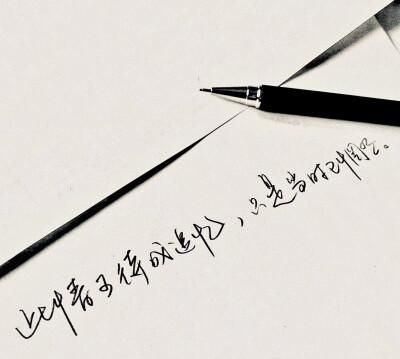 此情可待成追忆，只是当时已惘然。